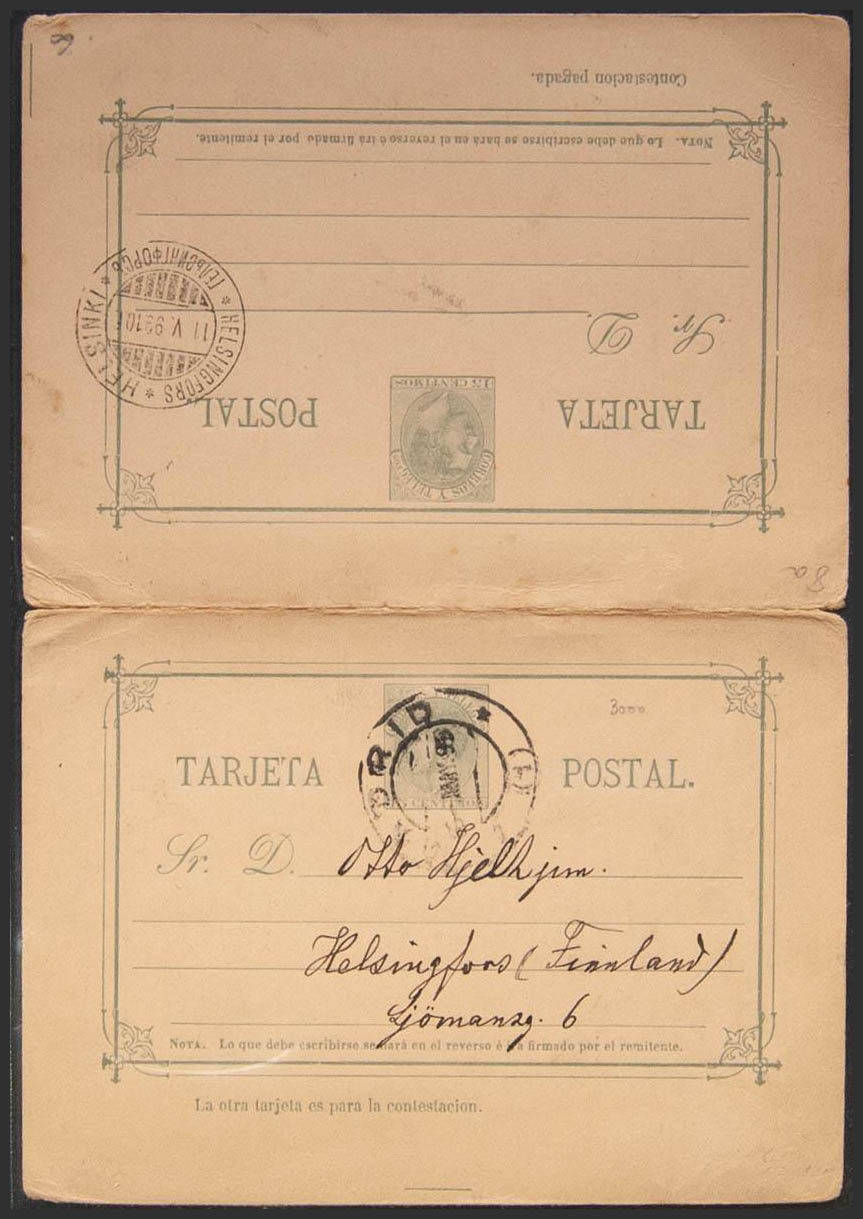 Contestacion pagada.
NOTA. Lo que debe escribirse se hará en el reverso é irá firmado por el remitente.
Sr. D.
TARJETA POSTAL
15 CENTIMOS
CORREOS Y
HELSINKI * HELSINGFORS * ГЕЛЬСИНГФОРСЪ
11 V. 93 10
8a
3000
TARJETA POSTAL.
DRID * (1)
CENTIMOS
Sr. D. Otto Hjelhjim.
Helsingfors (Finnland)
Sjömansg. 6
NOTA. Lo que debe escribirse se hará en el reverso é irá firmado por el remitente.
La otra tarjeta es para la contestacion.